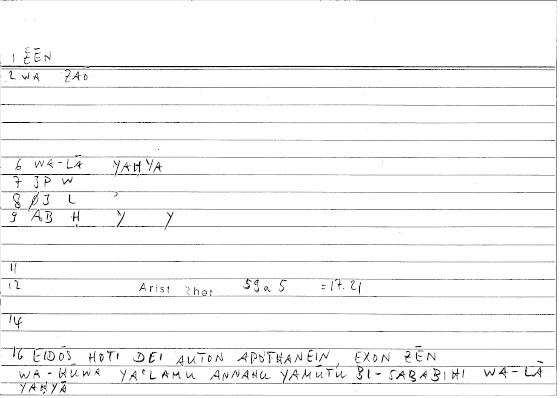 1 ZĒN
2 WA ZAO
6 WA-LĀ YAḤYA
7 JP W
8 ØJ L ʾ
9 AB Ḥ Y Y
11
12 Arist Rhet 59a 5 =17.21
14
16 EIDŌS HOTI DEI AUTON APOTHANEIN, EXON ZĒN
WA-HUWA YAʿLAMU ANNAHU YAMŪTU BI-SABABIHI WA-LĀ
YAḤYĀ